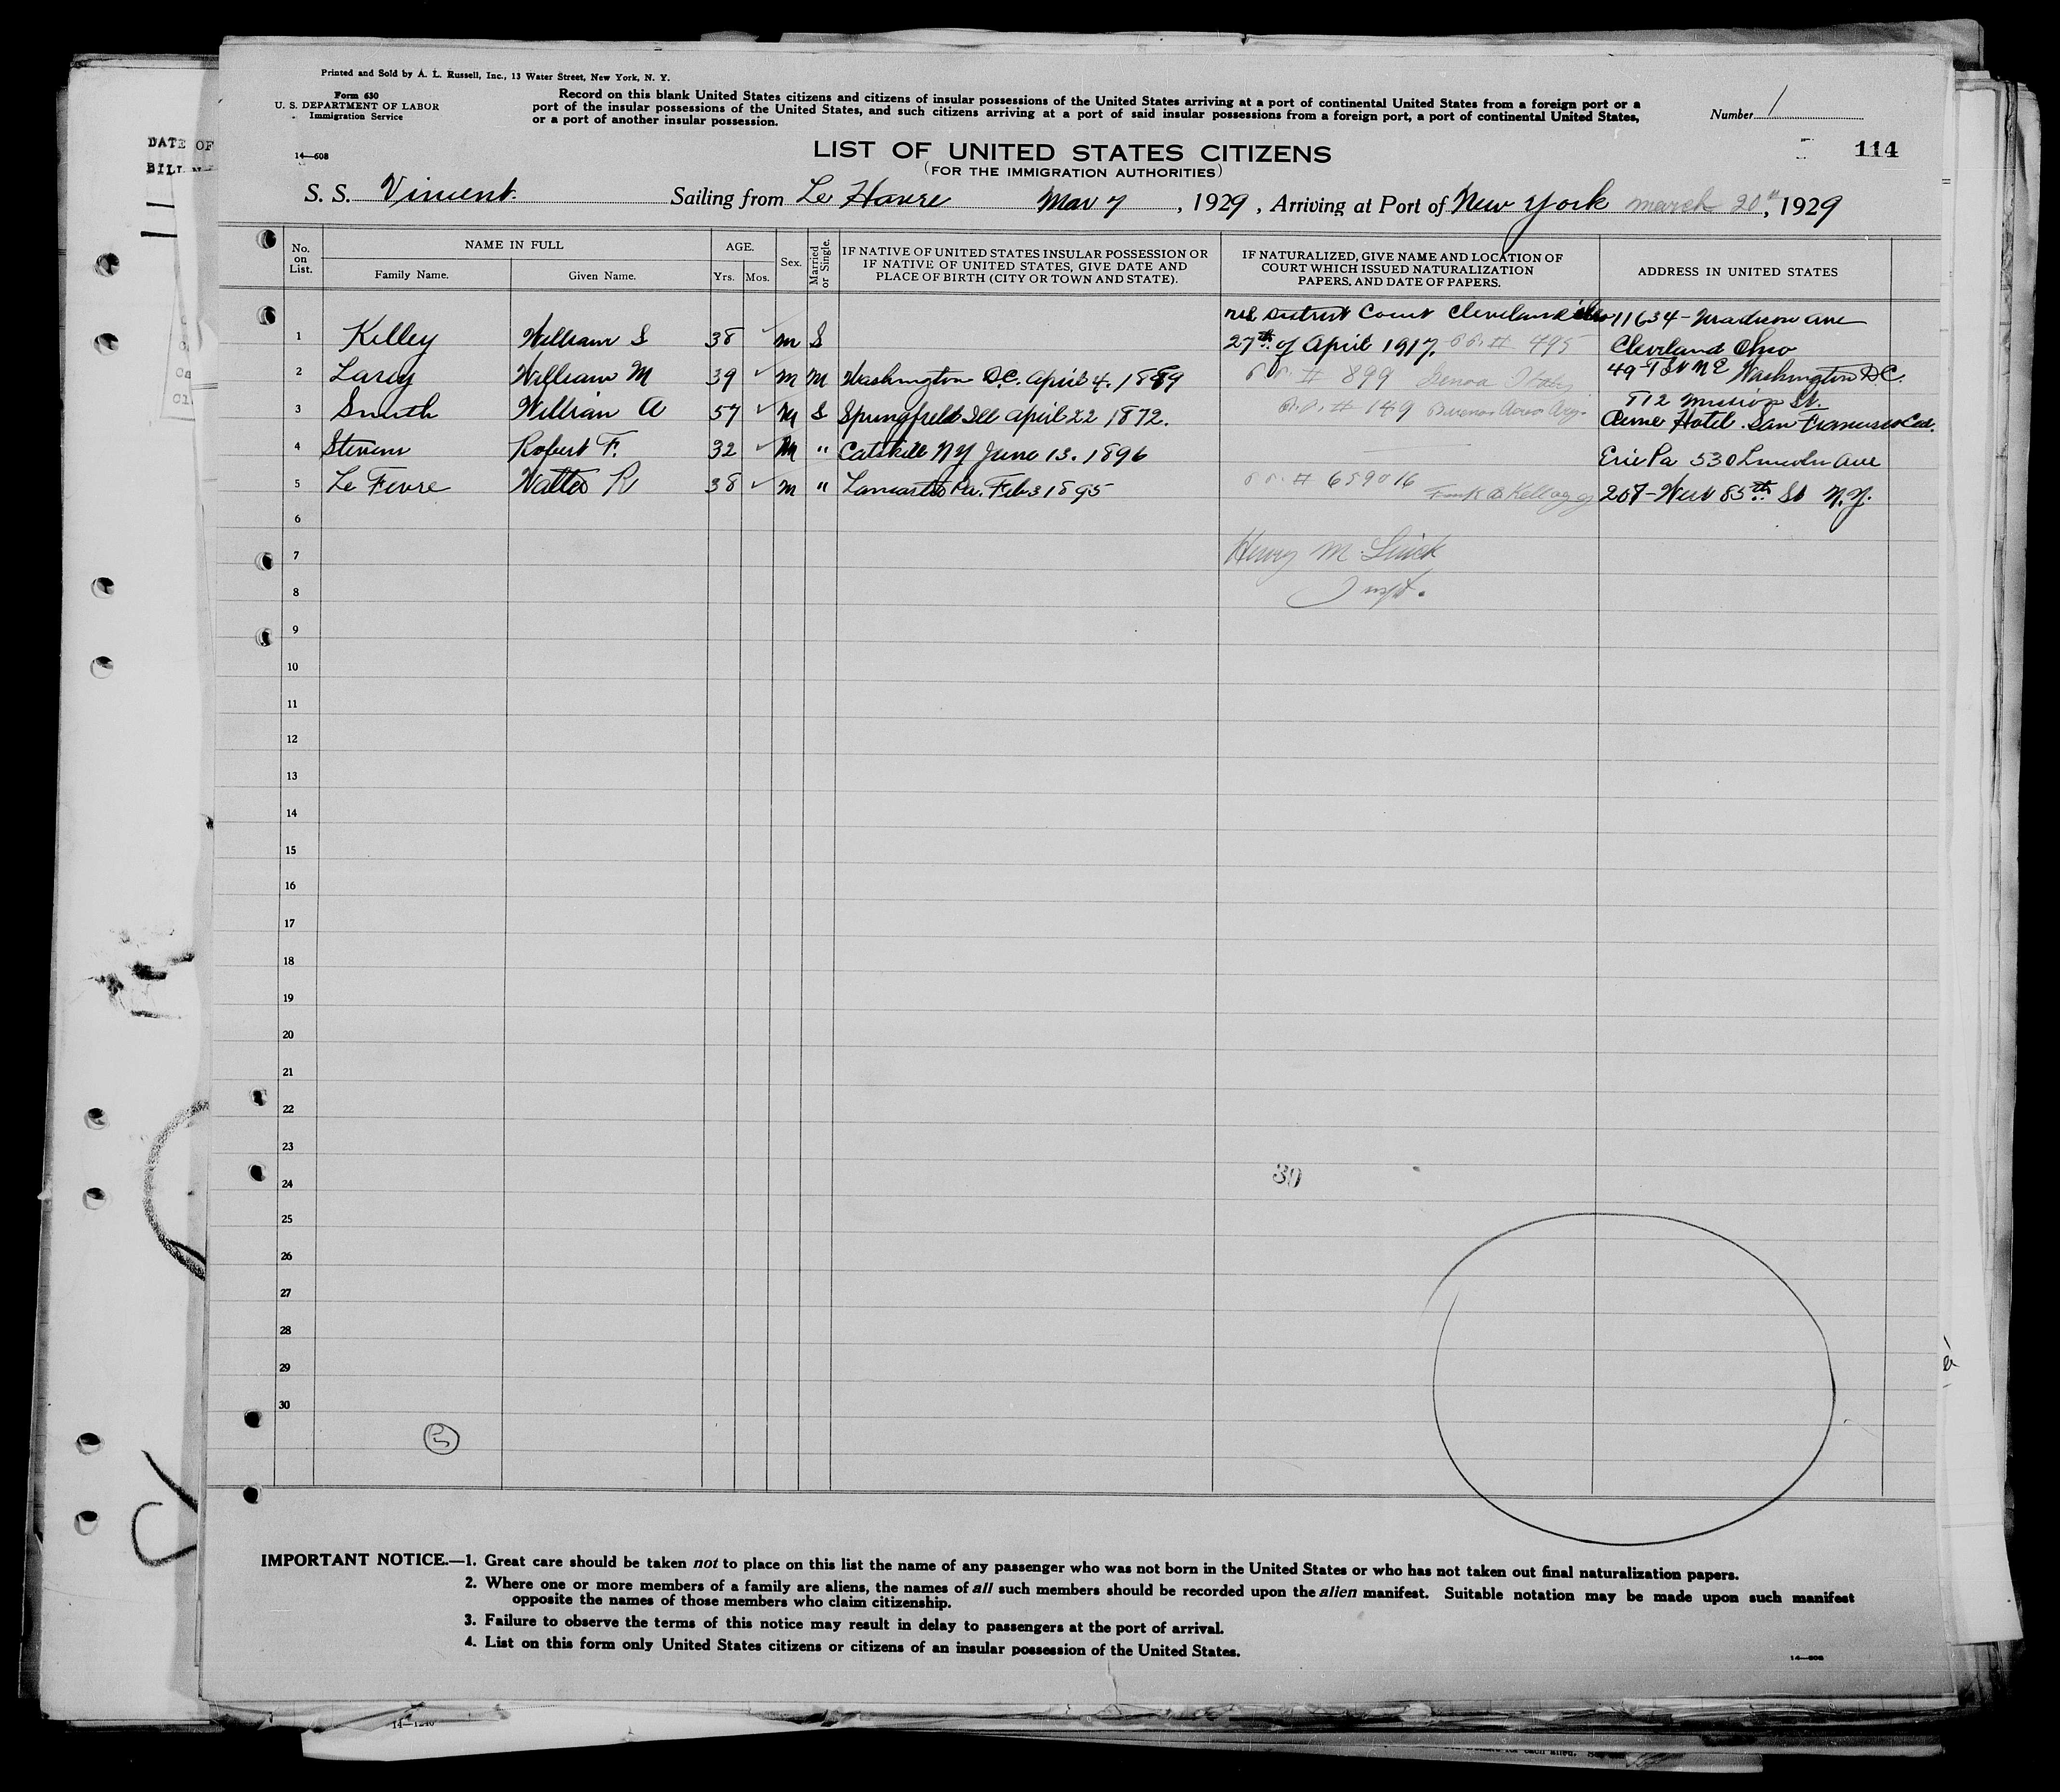 Printed and Sold by A. L. Russell, Inc., 13 Water Street, New York, N. Y.
Form 630
U. S. DEPARTMENT OF LABOR
Immigration Service
14—608
Record on this blank United States citizens and citizens of insular possessions of the United States arriving at a port of continental United States from a foreign port or a
port of the insular possessions of the United States, and such citizens arriving at a port of said insular possessions from a foreign port, a port of continental United States,
or a port of another insular possession.
Number 1
114
DATE OF
BILL
LIST OF UNITED STATES CITIZENS
(FOR THE IMMIGRATION AUTHORITIES)
S. S. Vincent. Sailing from Le Havre Mar 7, 1929, Arriving at Port of New York march 20th, 1929
No. on List.
NAME IN FULL
Family Name.
Given Name.
AGE.
Yrs.
Mos.
Sex.
Married or Single.
IF NATIVE OF UNITED STATES INSULAR POSSESSION OR
IF NATIVE OF UNITED STATES, GIVE DATE AND
PLACE OF BIRTH (CITY OR TOWN AND STATE).
IF NATURALIZED, GIVE NAME AND LOCATION OF
COURT WHICH ISSUED NATURALIZATION
PAPERS, AND DATE OF PAPERS.
ADDRESS IN UNITED STATES
District Court Cleveland 11634 - Madison Ave
1 Kelley William S 38 M S 27th of April 1917. # 495 Cleveland Ohio
2 William M 39 M M Washington D.C. April 4. 1889 # 899 Genoa Italy 49 - NE Washington D.C.
812 Mission St.
3 Smith William A 57 M S Springfield Ill April 22 1872. # 149 Buenos Aires Arg. Acme Hotel. San Francisco Cal.
4 Stevens Robert F. 32 M " Catskill NY June 13. 1896 — Erie Pa 530 Lincoln Ave
5 Le Fevre Walter R 38 M " Lancaster Pa. Feb 3 1895 # 659016 Frank B Kellogg 207 - West 85th St N.Y.
6
7 Henry M.
8 Inspt.
9
10
11
12
13
14
15
16
17
18
19
20
21
22
23
24 30
25
26
27
28
29
30
5
IMPORTANT NOTICE.—1. Great care should be taken not to place on this list the name of any passenger who was not born in the United States or who has not taken out final naturalization papers.
2. Where one or more members of a family are aliens, the names of all such members should be recorded upon the alien manifest. Suitable notation may be made upon such manifest
opposite the names of those members who claim citizenship.
3. Failure to observe the terms of this notice may result in delay to passengers at the port of arrival.
4. List on this form only United States citizens or citizens of an insular possession of the United States.
14—608
14—1240